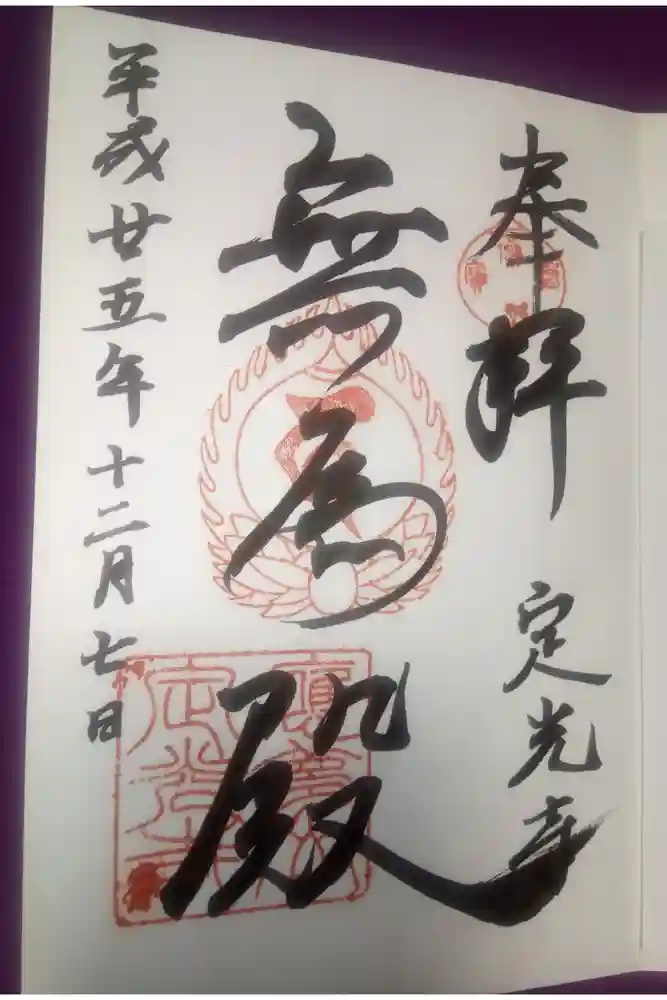 奉拝
定光寺
無為殿
平成廿五年十二月七日